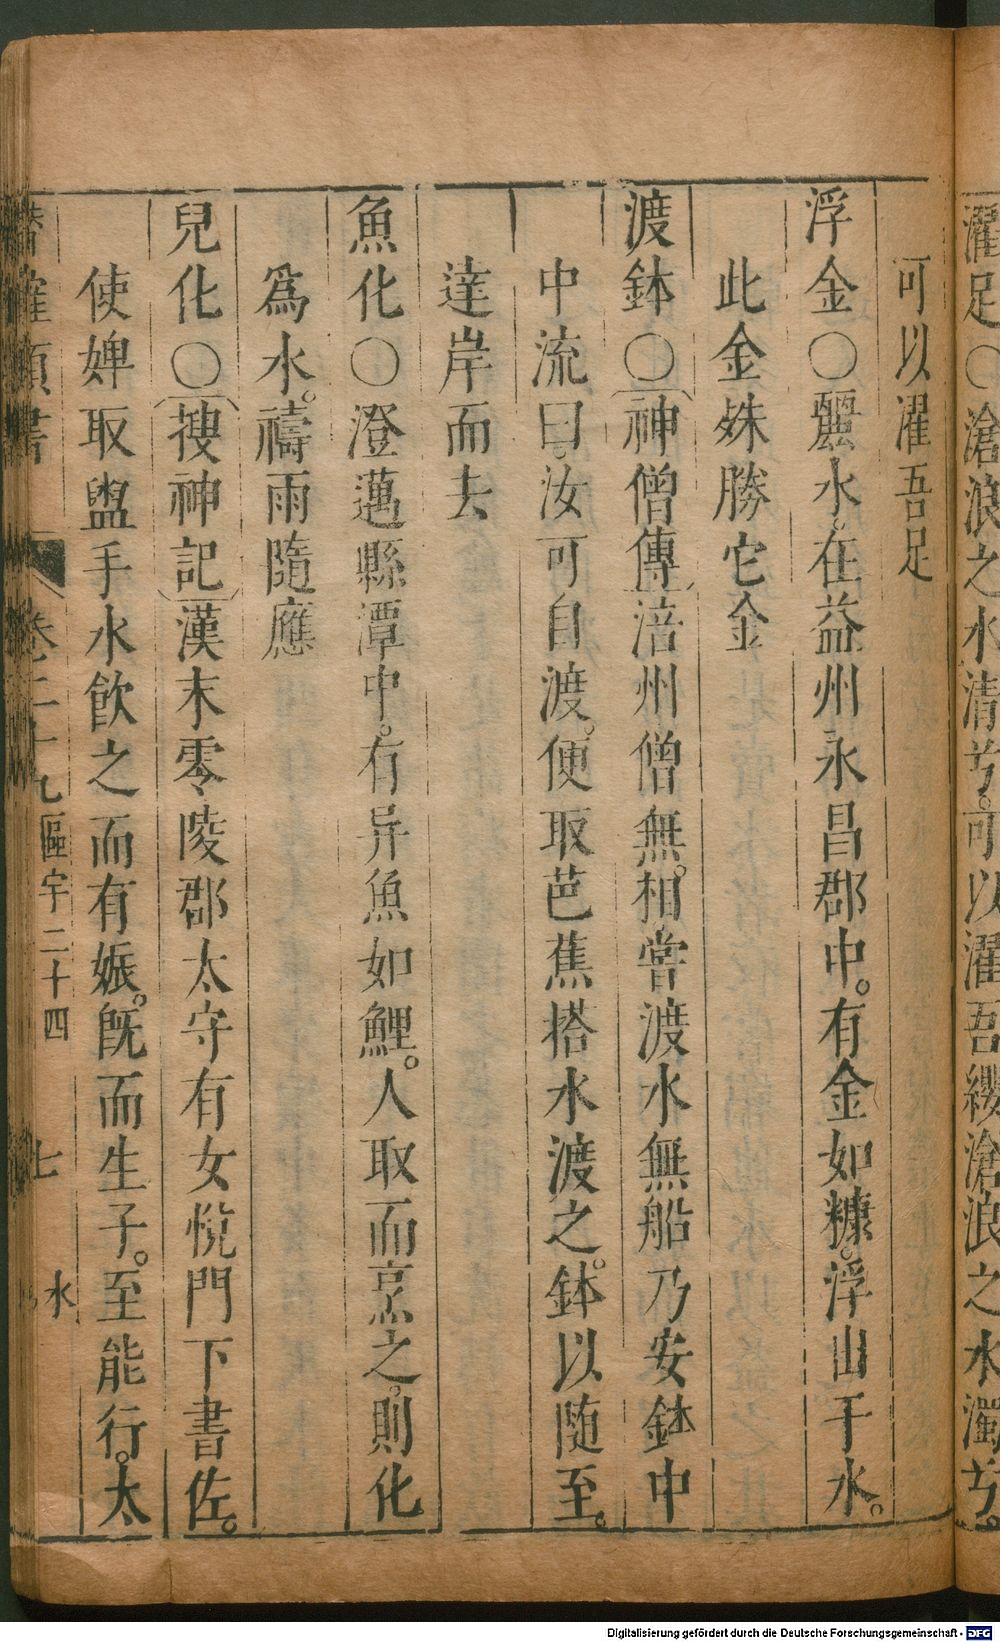 濯足〇滄浪之水清兮。可以濯吾纓滄浪之水濁兮。
可以濯吾足
浮金〇麗水。在益州永昌郡中。有金如糠。浮出于水。
此金殊勝它金
渡鉢〇神僧傳涪州僧無。相嘗渡水無船乃安鉢中
中流曰。汝可自渡。便取芭蕉搭水渡之。鉢以随至。
達岸而去
魚化〇澄邁縣潭中。有异魚如鯉。人取而烹之。則化
爲水。禱雨隨應
兒化〇搜神記漢末零陵郡太守有女悅門下書佐。
使婢取盥手水飲之而有娠。旣而生子。至能行。太
潛確類書 卷二十九區宇二十四 七 水
Digitalisierung gefördert durch die Deutsche Forschungsgemeinschaft - DFG